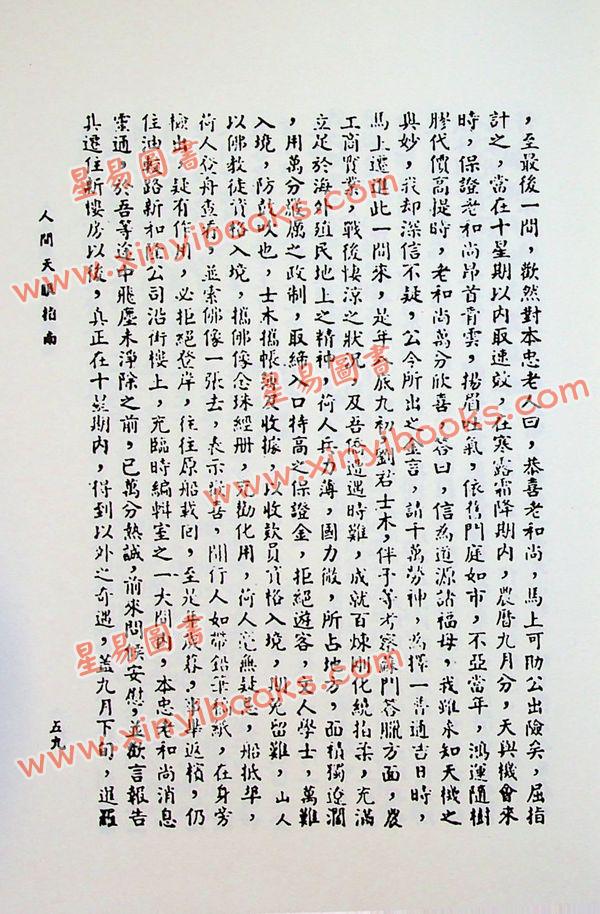 ，至最後一問，歡然對本忠老人曰，恭喜老和尚，馬上可助公出險矣，屈指
計之，當在十星期以內取速效，在寒露霜降期內，農曆九月分，天與機會來
時，保證老和尚昂首青雲，揚眉吐氣，依舊門庭如市，不亞當年，鴻運隨樹
膠代價高提時，老和尚萬分欣喜，答曰，信為道源諸福母，我雖未知天機之
與妙，我却深信不疑，公今所出之金言，請千萬勞神，為擇一普通吉日時，
馬上遷進此一間來，是年 旅九初，劉君士木，伴予等考察蘇門答臘方面，農
工商實業，戰後悽涼之狀況，及吾僑遭遇時難，成就百煉剛化繞指柔，充滿
立足於海外殖民地上之精神，荷人兵力薄，國力微，所占地方，面積獨遼濶
，用萬分 之政制，取締入口特高之保證金，拒絕遊客，文人學士，萬難
入境，防 也，士木攜帳簿及收據，以收款員資格入境， 免留難，山人
以佛教徒資格入境，攜佛像念珠經册， 勸化用，荷人毫無疑忌，船抵埠，
荷人登舟查看，並索佛像一張去，表示 喜，同行人如帶鉛筆 紙，在身旁
檢出 疑有作用，必拒絕登岸，往往原船載回，至是年歲暮， 返檳，仍
住油較路新和 公司沿街樓上，充臨時編輯室之一大間內，本忠老和尚消息
靈通，於吾等途中飛塵未淨除之前，已萬分熱誠，前來問候安慰，並歡言報告
其遷住新樓房以後，真正在十星期內，得到以外之奇遇，蓋九月下旬，進
人間天眼指南
五九
星易圖書
www.xinyibooks.com
星易圖書
www.xinyibooks.com
星易圖書
www.xinyibooks.com
星易圖書
www.xinyibooks.com